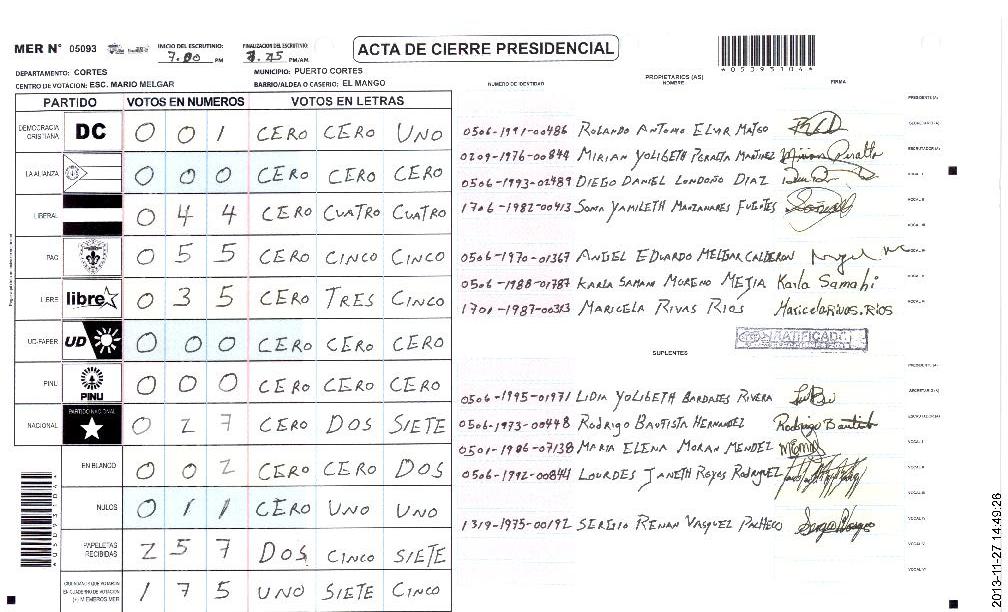 MER N° 05093
INICIO DEL ESCRUTINIO: 7.00 PM
FINALIZACION DEL ESCRUTINIO: 7.45 PM/AM
ACTA DE CIERRE PRESIDENCIAL
DEPARTAMENTO: CORTES
MUNICIPIO: PUERTO CORTES
CENTRO DE VOTACION: ESC. MARIO MELGAR
BARRIO/ALDEA O CASERIO: EL MANGO
PARTIDO VOTOS EN NUMEROS VOTOS EN LETRAS
DEMOCRACIA CRISTIANA DC 0 0 1 CERO CERO UNO
LA ALIANZA 0 0 0 CERO CERO CERO
LIBERAL 0 4 4 CERO CUATRO CUATRO
PAC 0 5 5 CERO CINCO CINCO
LIBRE libre 0 3 5 CERO TRES CINCO
UD-FAPER UD 0 0 0 CERO CERO CERO
PINU PINU 0 0 0 CERO CERO CERO
NACIONAL PARTIDO NACIONAL 0 2 7 CERO DOS SIETE
EN BLANCO 0 0 2 CERO CERO DOS
NULOS 0 1 1 CERO UNO UNO
PAPELETAS RECIBIDAS 2 5 7 DOS CINCO SIETE
CIUDADANOS QUE VOTARON EN CUADERNO DE VOTACION (+) MIEMBROS MER 1 7 5 UNO SIETE CINCO
NUMERO DE IDENTIDAD
PROPIETARIOS (AS)
NOMBRE
FIRMA
0506-1991-00486 ROLANDO ANTONIO ELVIR MATEO
0209-1976-00844 MIRIAN YOLIBETH PERALTA MARTINEZ Mirian Peralta
0506-1993-02489 DIEGO DANIEL LONDOÑO DIAZ
1706-1982-00413 SONIA YAMILETH MANZANARES FUENTES
0506-1970-01367 ANGEL EDUARDO MELGAR CALDERON
0506-1988-01787 KARLA SAMAN MORENO MEJIA Karla Samahi
1701-1987-00313 MARICELA RIVAS RIOS Maricela Rivas.Rios
RATIFICADA
SUPLENTES
0506-1995-01971 LIDIA YOLIBETH BARDALES RIVERA
0506-1973-00448 RODRIGO BAUTISTA HERNANDEZ Rodrigo Bautista
0501-1986-07138 MARIA ELENA MORAN MENDEZ
0506-1992-00841 LOURDES JANETH REYES RODRIGUEZ
1319-1975-00192 SERGIO RENAN VASQUEZ PACHECO
2013-11-27 14:49:26